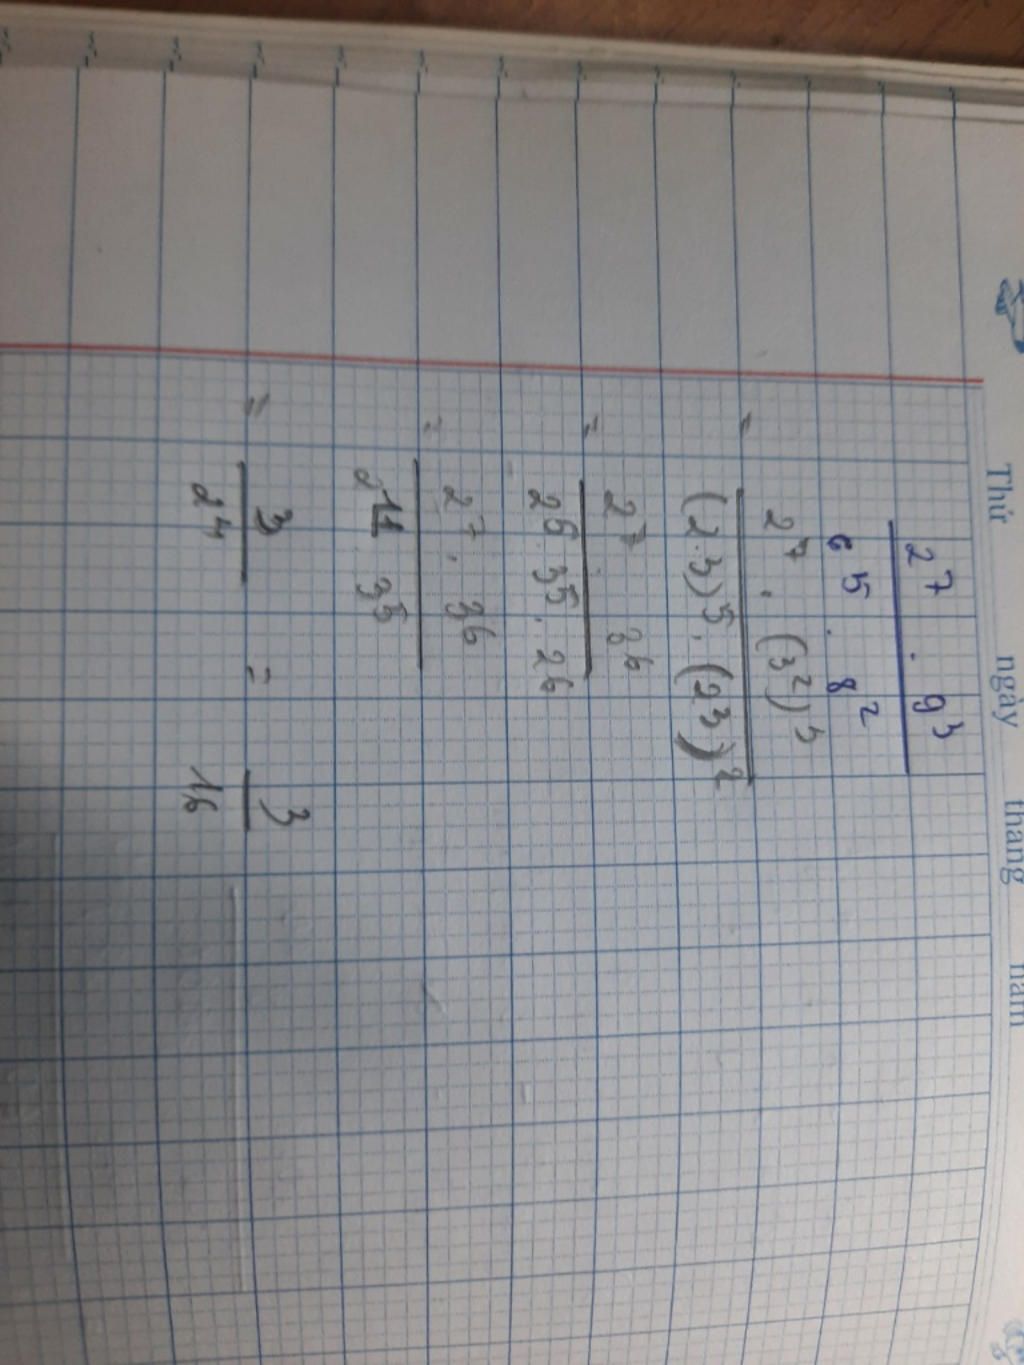 Thứ ngày tháng năm
2^7 . 9^3
6^5 . 8^2
= 2^7 . (3^2)^3
(2.3)^5 . (2^3)^2
= 2^7 . 3^6
2^5 . 3^5 . 2^6
= 2^7 . 3^6
2^11 3^5
= 3 = 3
2^4 16